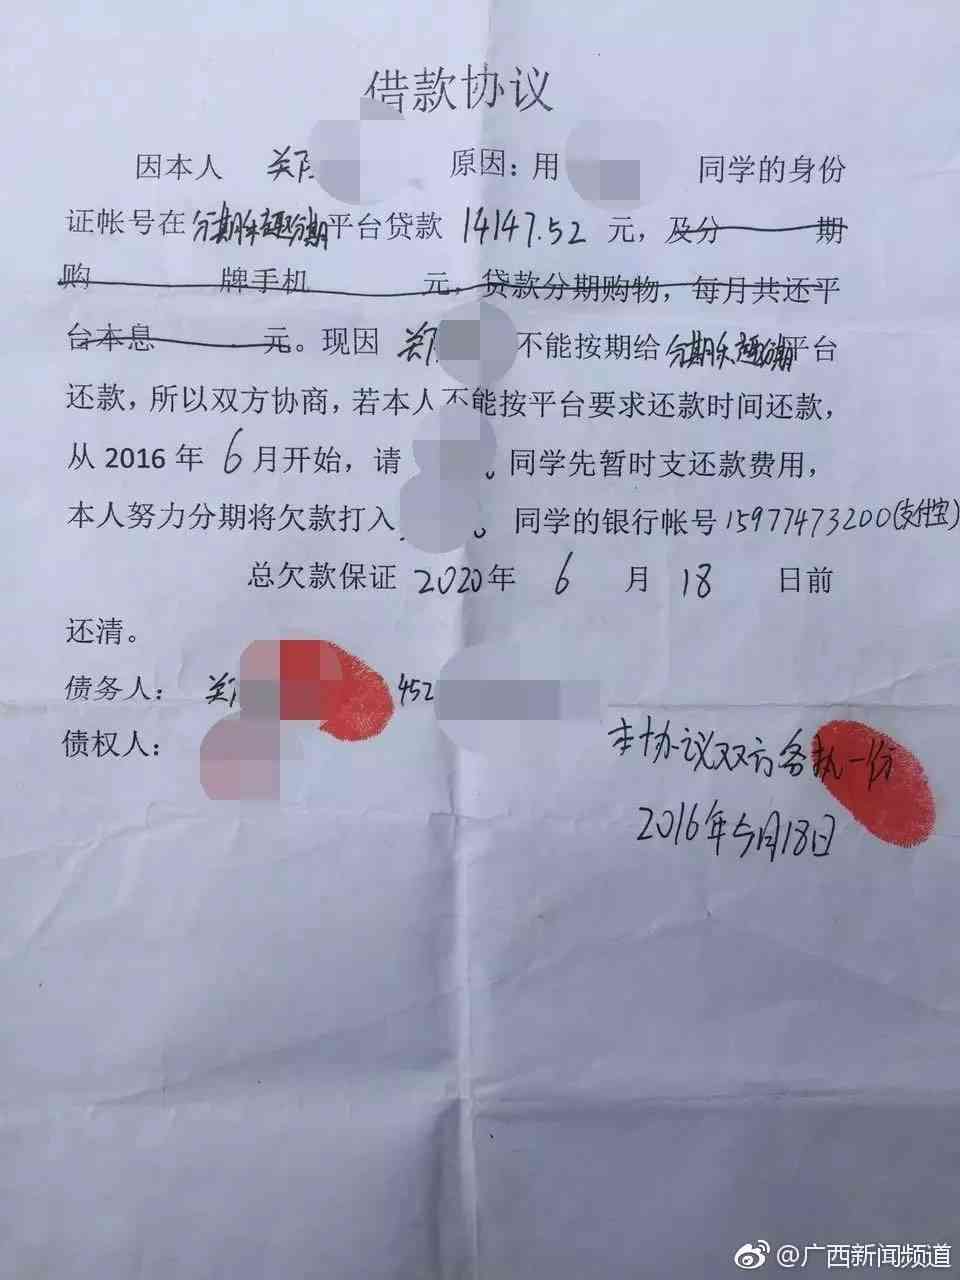 借款协议
因本人 关 原因：用 同学的身份
证帐号在分期乐趣分期平台贷款 14147.52 元，及分 期
购 牌手机 元，贷款分期购物，每月共还平
台本息 元。现因 关 不能按期给分期乐趣分期平台
还款，所以双方协商，若本人不能按平台要求还款时间还款，
从 2016 年 6 月开始，请 。同学先暂时支还款费用，
本人努力分期将欠款打入 。同学的银行帐号 15977473200(支付宝)
总欠款保证 2020 年 6 月 18 日前
还清。
债务人： 关 452
债权人：
本协议双方各执一份
2016年5月18日
@广西新闻频道